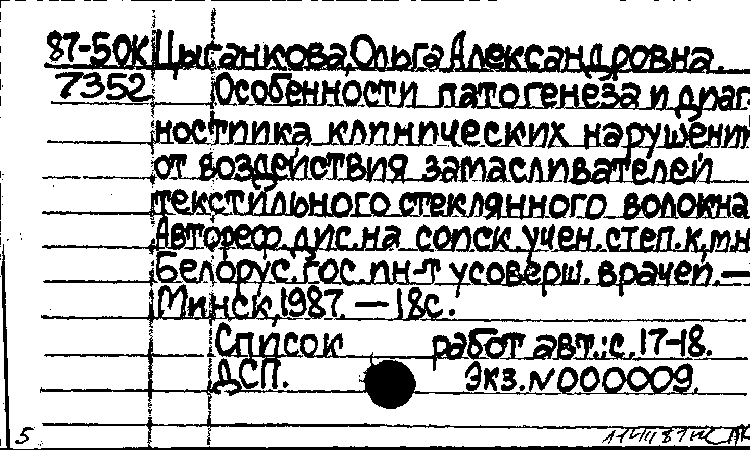 87-50К Цыганкова, Ольга Александровна.
7352 Особенности патогенеза и диаг-
ностика клинических нарушений
от воздействия замасливателей
текстильного стеклянного волокна:
Автореф. дис. на соиск. учен. степ. к.м.н.
Белорус. гос. ин-т усоверш. врачей. —
Минск, 1987. — 18с.
Список работ авт.: с. 17-18.
ДСП. Экз. N 000009.
5